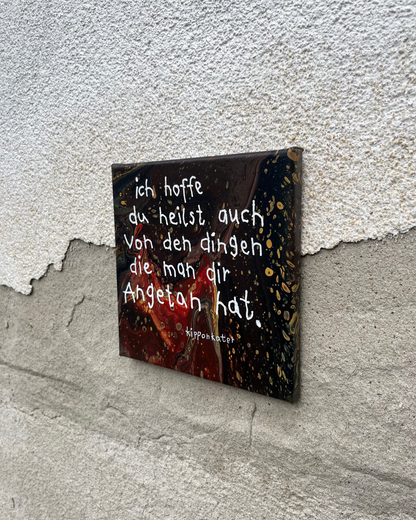 ich hoffe
du heilst auch
von den dingen
die man dir
Angetan hat.
kipponkater